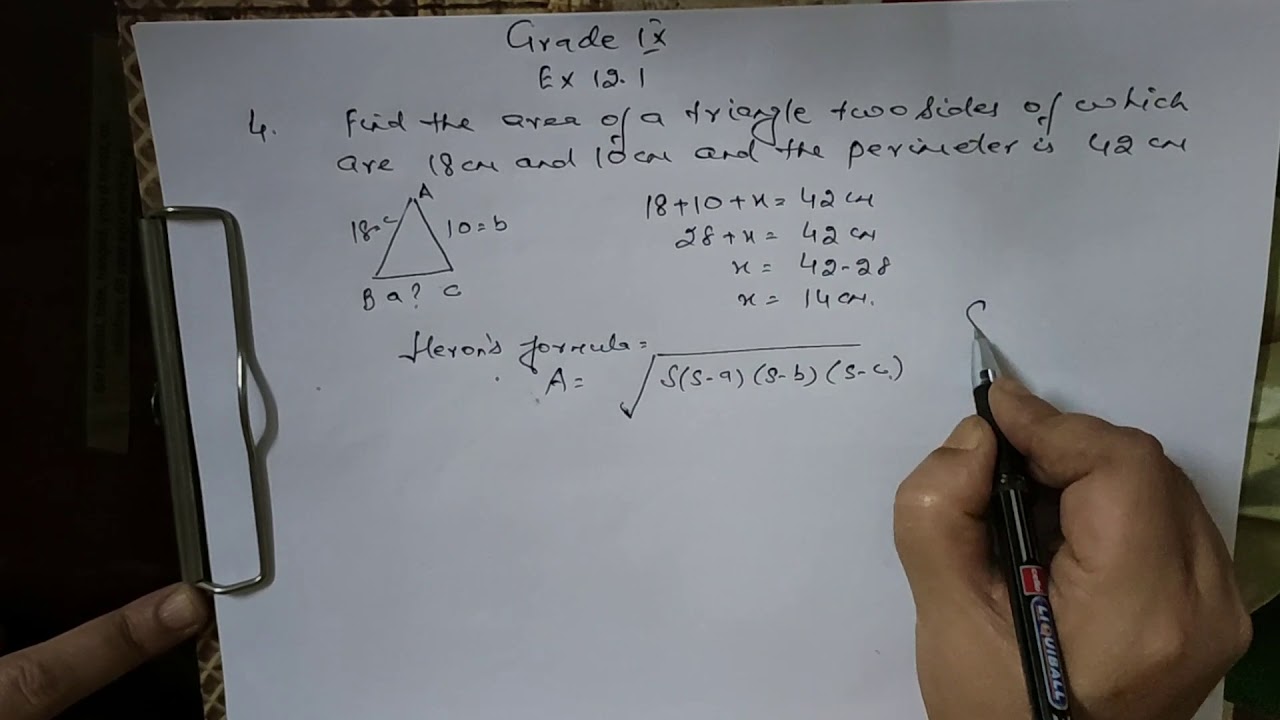 Grade IX
Ex 12.1
4. Find the area of a triangle two sides of which
are 18cm and 10cm and the perimeter is 42 cm
A
18=c
10=b
B a? C
18+10+x=42cm
28+x= 42 cm
x= 42-28
x= 14cm.
Heron's formula=
A= √S(S-a)(S-b)(S-c)
S
LIQUIBALL